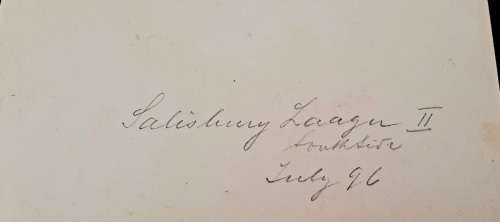 Salisbury Laager II
South Side
July 96